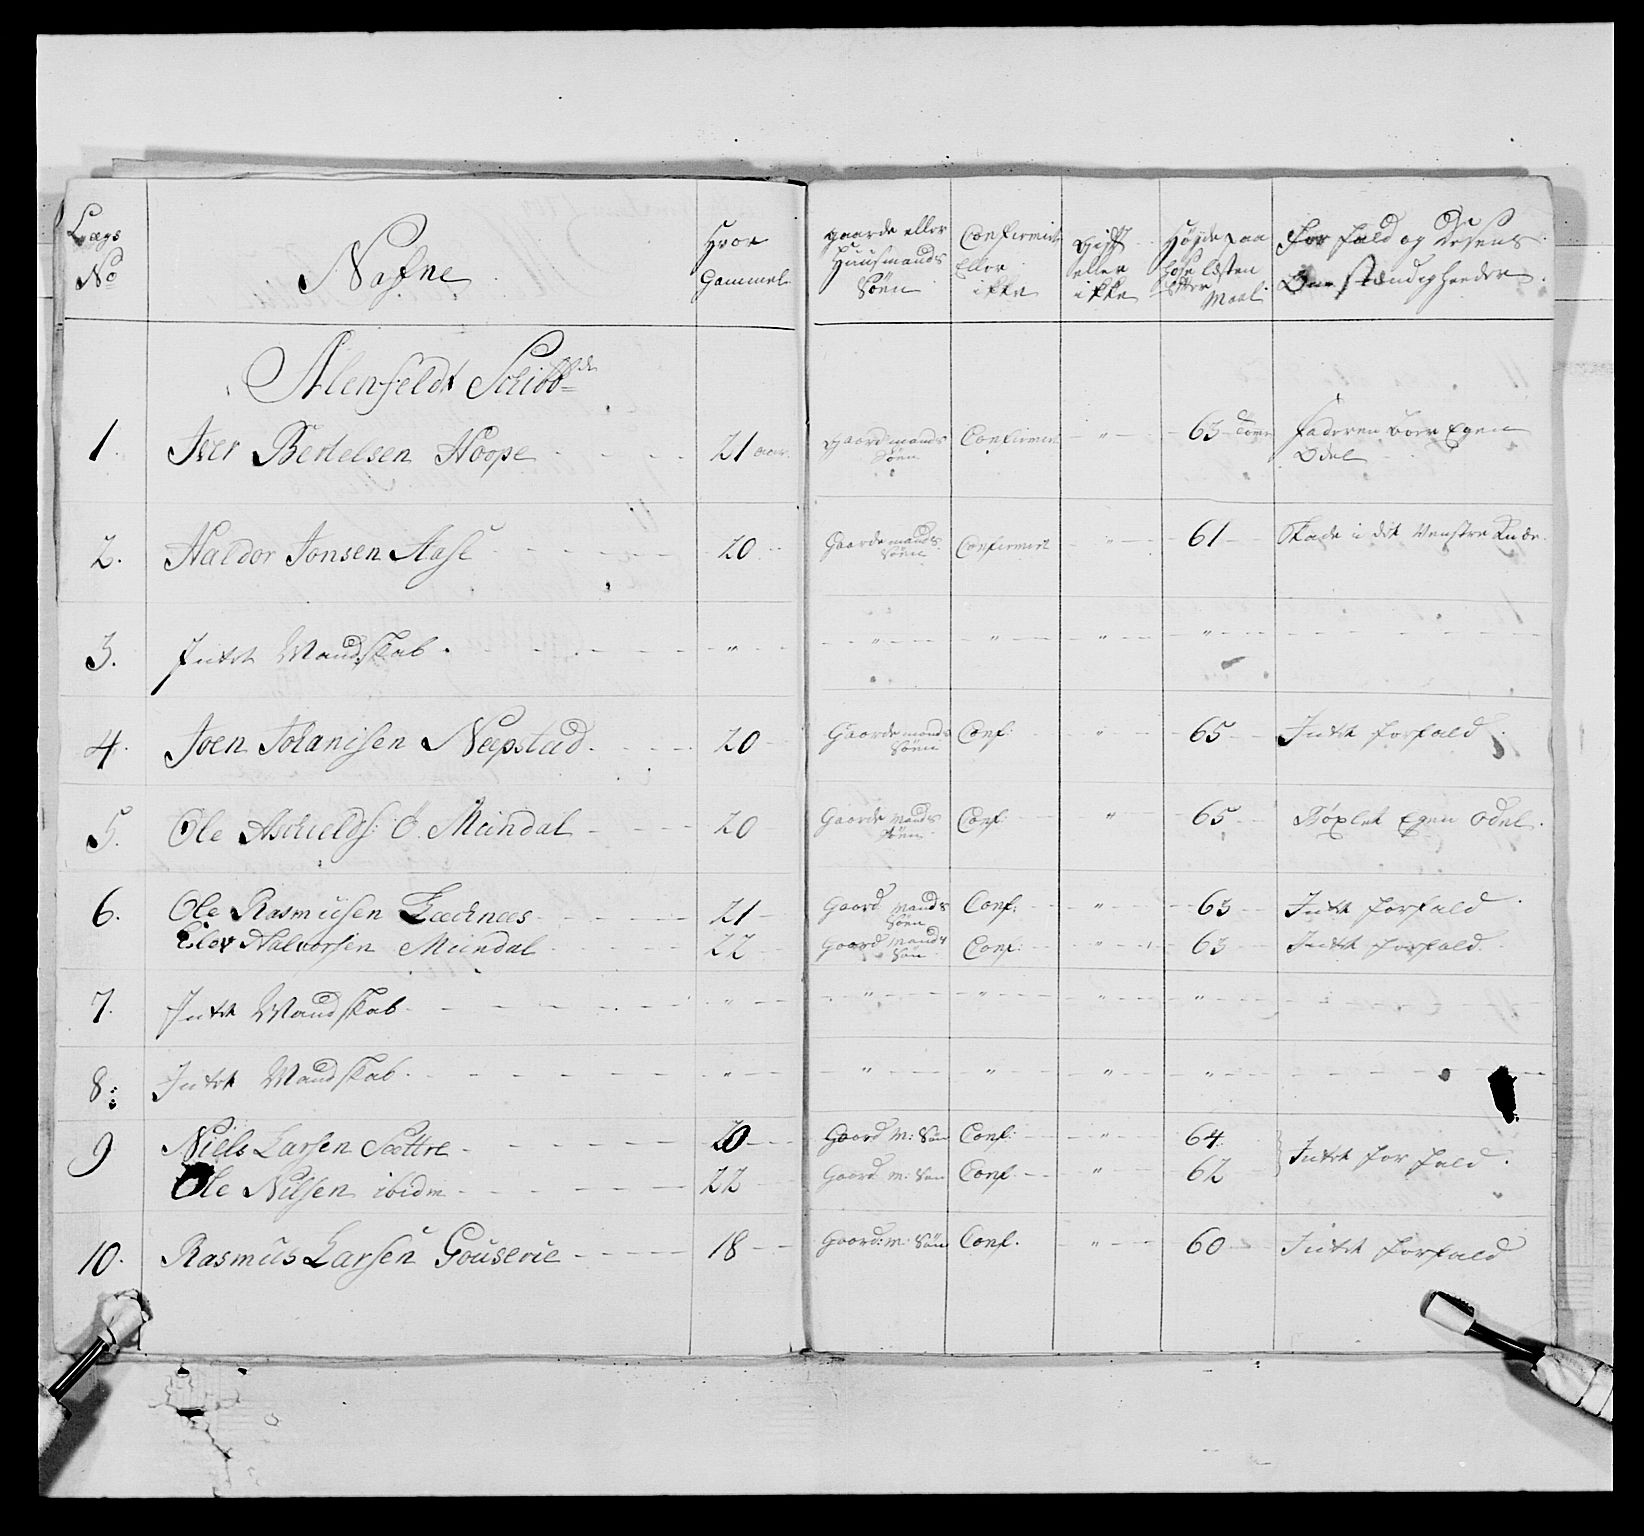 Lægs No | Nafne | Hvor Gammel | gaarde eller Huusmands Søen | Confirmeret Eller ikke | Gift eller ikke | Højde paa hose læsten Efter Maal | Forfald og Desens Omstændigheder
Alenfeldt Schibbde
1. | Iver Bertelsen Hoope | 21 aar | gaardmands Søen | Confirmert | " | 63 Tom | Faderen boer Egen Odel
2. | Haldor Jonsen Aase | 20 | Gaardemands Søen | Confirmert | " | 61 | Skade i det Venstre Knæ
3. | Intet Mandskab | " | " | " | " | "
4. | Joen Johanisen Nepstad | 20 | Gaardemands Søen | Conf: | " | 65 | Intet forfald
5. | Ole Aschields: Ö. Mundal | 20 | Gaarde Mands Søen | Conf | " | 65 | Egen Odel
6. | Ole Rasmusen Lecknæs | 21 | Gaard Mands Søen | Conf: | " | 63 | Intet forfald
Elev Halvorsen Mundal | 22 | Gaard Mands Søn | Conf: | " | 63 | Intet forfald
7. | Intet Mandskab | " | " | " | " | "
8. | Intet Mandskab | " | " | " | " | "
9 | Niels Larsen Sættre | 20 | Gaard M: Søn | Conf: | " | 64 | Intet forfald
Ole Nilsen ibidm | 22 | Gaard M: Søn | Conf. | " | 62
10. | Rasmus Larsen Gouserie | 18 | Gaord: M: Søn | Conf. | " | 60 | Intet forfald